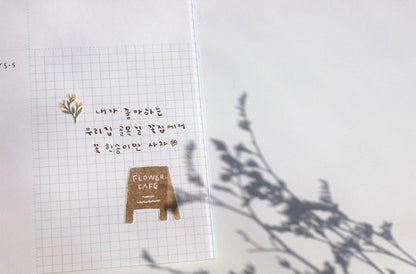 내가 좋아하는
우리집 골목길 꽃집에서
꽃 한송이만 사라
FLOWER
CAFE